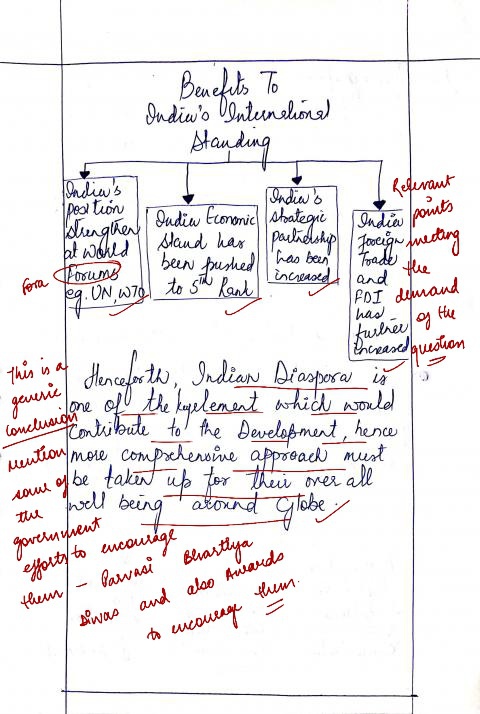 Benefits To
India's International
Standing
India's
position
strengthen
at World
Forums
eg. UN, WTO
India Economic
Stand has
been pushed
to 5th Rank
India's
strategic
Partnership
has been
increased
India
Foreign
Trade
and
FDI
has
further
increased
Fora
Relevant
points
meeting
the
demand
of the
question
Henceforth, Indian Diaspora is
one of the key element which would
contribute to the Development, hence
more comprehensive approach must
be taken up for their over all
well being around Globe.
This is a
generic
conclusion
mention
some of
the
government
efforts to encourage
them – Parvasi Bharthya
Diwas and also Awards
to encourage them.